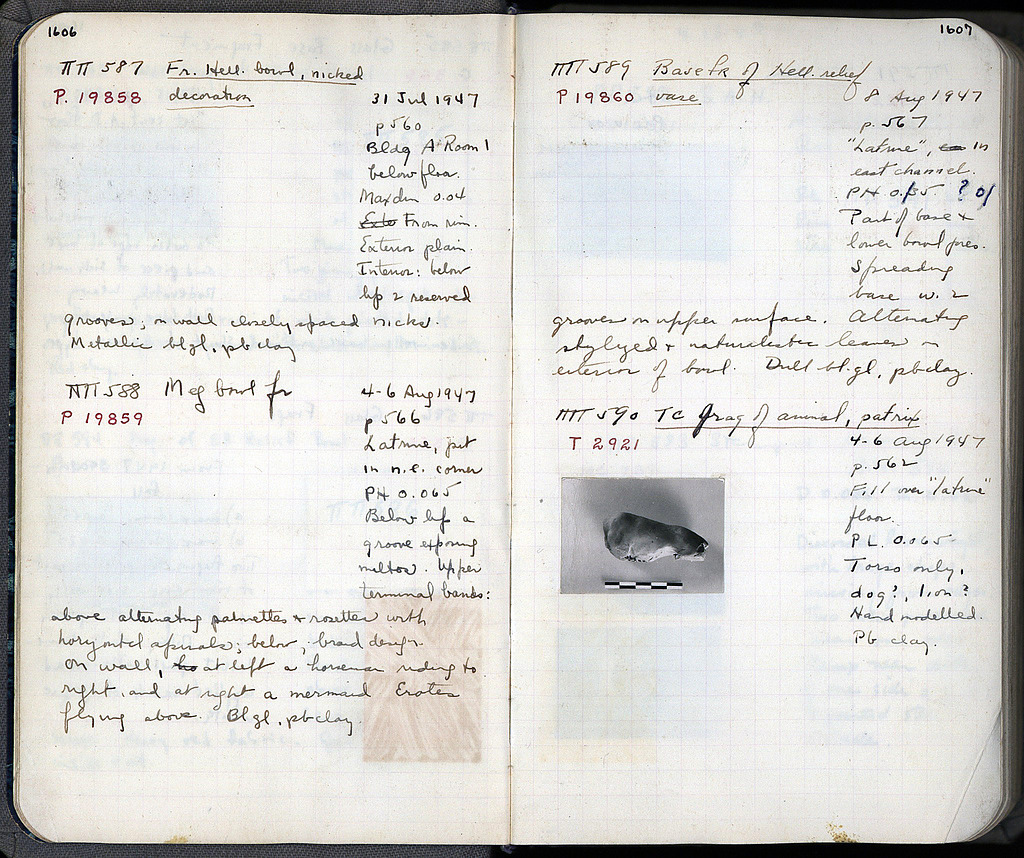 1606
ΠΠ 587 Fr. Hell. bowl, nicked
P. 19858 decoration
31 Jul 1947
p 560
Bldg A Room 1
below floor.
Max dim 0.04
From rim.
Exterior plain.
Interior: below
lip 2 reserved
grooves; on wall closely spaced nicks.
Metallic bl gl, pb clay
ΠΠ 588 Meg bowl fr
P 19859
4-6 Aug 1947
p 566
Latrine, pit
in n.e. corner
PH 0.065
Below lip a
groove exposing
miltos. Upper
terminal bands:
above alternating palmettes & rosettes with
horizontal spirals; below, braid design.
On wall, at left a horseman riding to
right, and at right a mermaid Erotes
flying above. Bl gl, pb clay.
1607
ΠΠ 589 Base fr of Hell. relief
P 19860 vase
8 Aug 1947
p. 567
"Latrine", in
east channel.
PH 0.035 ? 01
Part of base &
lower bowl pres.
Spreading
base w. 2
grooves on upper surface. Alternating
stylyzed & naturalistic leaves on
exterior of bowl. Dull bl. gl, pb clay.
ΠΠ 590 TC frag of animal, patrix
T 2921
4-6 Aug 1947
p. 562
Fill over "latrine"
floor.
PL. 0.065
Torso only,
dog?, lion?
Hand modelled.
Pb clay.